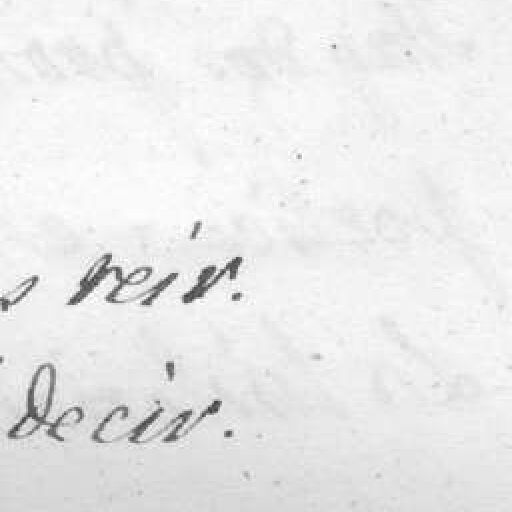 s reir.
decir.